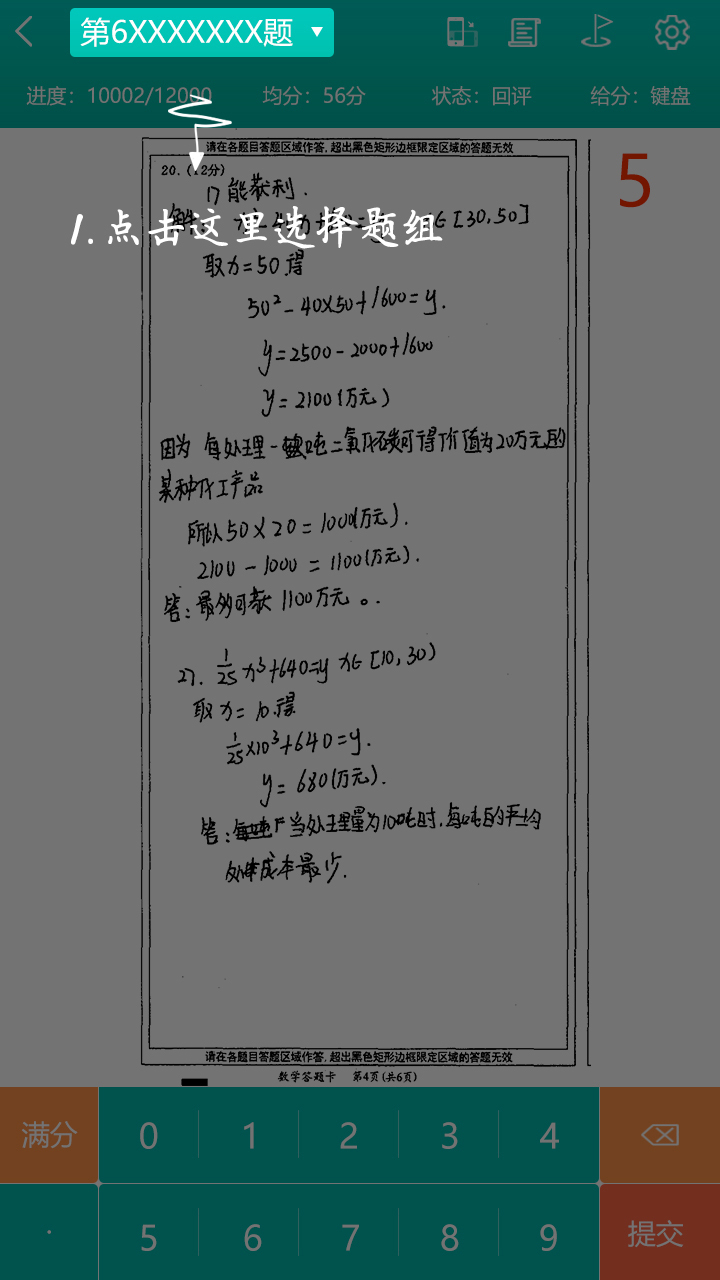 第6XXXXXXX题
进度：10002/12000 均分：56分 状态：回评 给分：键盘
请在各题目答题区域作答，超出黑色矩形边框限定区域的答题无效
5
20.（12分）
1) 能获利.
1.点击这里选择题组
∈[30,50]
取x=50得
50²-40×50+1600=y.
y=2500-2000+1600
y=2100(万元)
因为 每处理一吨二氧化碳可得价值为20万元的
某种化工产品
所以50×20=1000(万元).
2100-1000=1100(万元).
答:最多可获1100万元。.
2). 1/25x³+640=y x∈[10,30)
取x=10.得
1/25×10³+640=y.
y=680(万元).
答: 当处理量为10吨时,每吨的平均
成本最少.
请在各题目答题区域作答，超出黑色矩形边框限定区域的答题无效
数学答题卡 第4页(共6页)
满分 0 1 2 3 4
· 5 6 7 8 9 提交